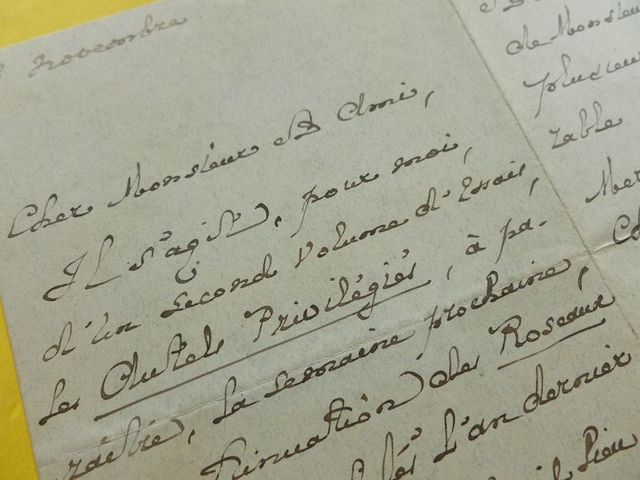 novembre
Cher Monsieur & Ami,
Il s'agit, pour moi,
d'un second volume d'Essais,
les Autels Privilégiés, à pa-
raître, la semaine prochaine,
tinuation des Roseaux
l'an dernier
lieu
de Monsieu
plusieu
rable
Mer